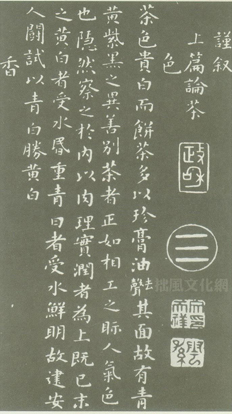 謹叙
上篇論茶
色
茶色貴白而餅茶多以珍膏油去聲其面故有青
黃紫黑之異善別茶者正如相工之眎人氣色
也隱然察之於內以肉理實潤者為上既已末
之黃白者受水昬重青白者受水鮮明故建安
人鬭試以青白勝黃白
香
政和